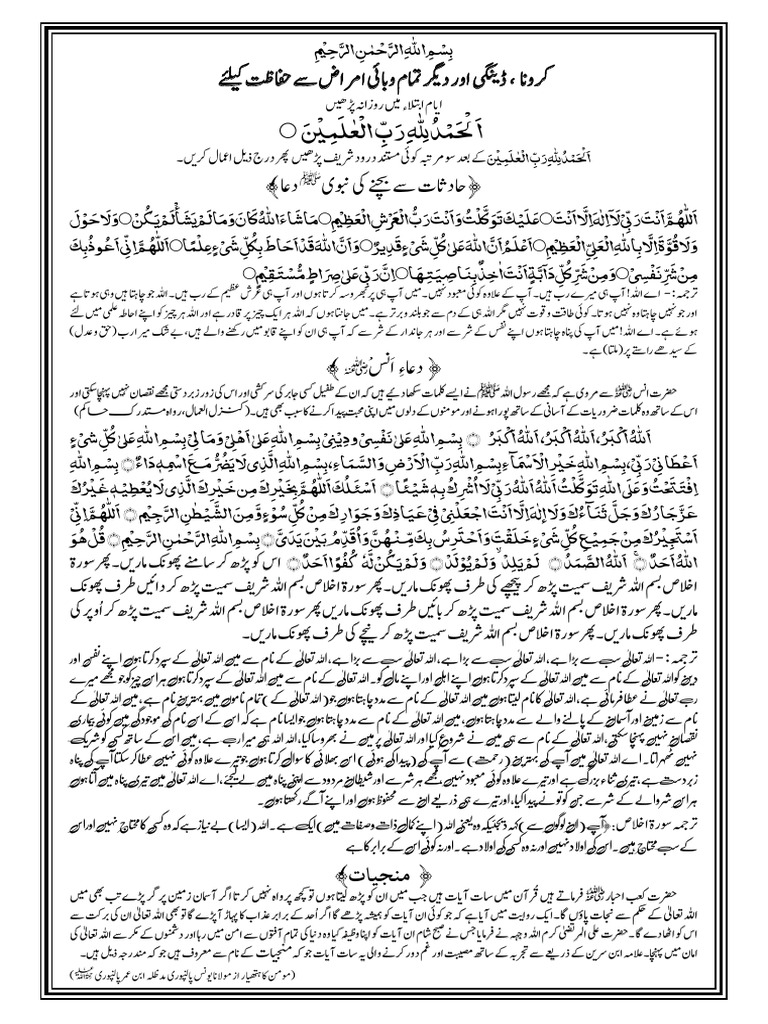 بِسْمِ اللهِ الرَّحْمٰنِ الرَّحِيْمِ
کرونا، ڈینگی اور دیگر تمام وبائی امراض سے حفاظت کیلئے
ایام ابتلاء میں روزانہ پڑھیں
اَلْحَمْدُ لِلّٰهِ رَبِّ الْعٰلَمِيْنَ ○
اَلْحَمْدُ لِلّٰهِ رَبِّ الْعٰلَمِيْنَ کے بعد سو مرتبہ کوئی مستند درود شریف پڑھیں پھر درج ذیل اعمال کریں۔
﴿حادثات سے بچنے کی نبوی ﷺ دعا﴾
اَللّٰهُمَّ اَنْتَ رَبِّيْ لَآ اِلٰهَ اِلَّا اَنْتَ ○ عَلَيْكَ تَوَكَّلْتُ وَاَنْتَ رَبُّ الْعَرْشِ الْعَظِيْمِ ○ مَا شَاءَ اللهُ كَانَ وَمَا لَمْ يَشَأْ لَمْ يَكُنْ ○ وَلَا حَوْلَ
وَلَا قُوَّةَ اِلَّا بِاللهِ الْعَلِيِّ الْعَظِيْمِ ○ اَعْلَمُ اَنَّ اللهَ عَلٰى كُلِّ شَيْءٍ قَدِيْرٌ ○ وَاَنَّ اللهَ قَدْ اَحَاطَ بِكُلِّ شَيْءٍ عِلْمًا ○ اَللّٰهُمَّ اِنِّيْ اَعُوْذُ بِكَ
مِنْ شَرِّ نَفْسِيْ ○ وَمِنْ شَرِّ كُلِّ دَآبَّةٍ اَنْتَ اٰخِذٌ بِنَاصِيَتِهَا ○ اِنَّ رَبِّيْ عَلٰى صِرَاطٍ مُّسْتَقِيْمٍ ○
ترجمہ:- اے اللہ! آپ ہی میرے رب ہیں۔ آپ کے علاوہ کوئی معبود نہیں۔ میں آپ ہی پر بھروسہ کرتا ہوں اور آپ ہی عرش عظیم کے رب ہیں۔ اللہ جو چاہتا ہیں وہی ہوتا ہے
اور جو نہیں چاہتا وہ نہیں ہوتا۔ کوئی طاقت و قوت نہیں مگر اللہ ہی کے دم سے جو بلند و برتر ہے۔ میں جانتا ہوں کہ اللہ ہر ایک چیز پر قادر ہے اور اللہ ہر چیز کو اپنے احاطہ علمی میں لئے
ہوئے ہے۔ اے اللہ! میں آپ کی پناہ چاہتا ہوں اپنے نفس کے شر سے اور ہر جاندار کے شر سے کہ آپ ہی ان کو اپنے قابو میں رکھنے والے ہیں، بے شک میرا رب (حق و عدل)
کے سیدھے راستے پر (ملتا) ہے۔
﴿ دعاءِ اَنَسْ ﷜ ﴾
حضرت انس ﷜ سے مروی ہے کہ مجھے رسول اللہ ﷺ نے ایسے کلمات سکھا دیے ہیں کہ ان کے طفیل کسی جابر کی سرکشی اور اس کی زور زبردستی مجھے نقصان نہیں پہنچا سکتی اور
اس کے ساتھ وہ کلمات ضروریات کے آسانی کے ساتھ پورا ہونے اور مومنوں کے دلوں میں اپنی محبت پیدا کرنے کا سبب بھی ہیں۔ (کنزل العمال، رواہ مستدرک حاکم)
اَللهُ اَكْبَرُ، اَللهُ اَكْبَرُ، اَللهُ اَكْبَرُ ○ بِسْمِ اللهِ عَلٰى نَفْسِيْ وَدِيْنِيْ بِسْمِ اللهِ عَلٰى اَهْلِيْ وَمَالِيْ بِسْمِ اللهِ عَلٰى كُلِّ شَيْءٍ
اَعْطَانِيْ رَبِّيْ، بِسْمِ اللهِ خَيْرِ الْاَسْمَآءِ بِسْمِ اللهِ رَبِّ الْاَرْضِ وَالسَّمَاءِ، بِسْمِ اللهِ الَّذِيْ لَا يَضُرُّ مَعَ اسْمِهٖ دَاءٌ ○ بِسْمِ اللهِ
اِفْتَتَحْتُ وَعَلَى اللهِ تَوَكَّلْتُ اَللهُ اَللهُ رَبِّيْ لَا اُشْرِكُ بِهٖ شَيْئًا ○ اَسْئَلُكَ اللّٰهُمَّ بِخَيْرِكَ مِنْ خَيْرِكَ الَّذِيْ لَا يُعْطِيْهِ غَيْرُكَ
عَزَّ جَارُكَ وَجَلَّ ثَنَاءُكَ وَلَا اِلٰهَ اِلَّا اَنْتَ اجْعَلْنِيْ فِيْ عِيَاذِكَ وَجِوَارِكَ مِنْ كُلِّ سُوْءٍ وَّمِنَ الشَّيْطٰنِ الرَّجِيْمِ ○ اَللّٰهُمَّ اِنِّيْ
اَسْتَجِيْرُكَ مِنْ جَمِيْعِ كُلِّ شَيْءٍ خَلَقْتَ وَاَحْتَرِسُ بِكَ مِنْهُنَّ وَاُقَدِّمُ بَيْنَ يَدَيَّ ○ بِسْمِ اللهِ الرَّحْمٰنِ الرَّحِيْمِ ○ قُلْ هُوَ
اللهُ اَحَدٌ ○ اَللهُ الصَّمَدُ ○ لَمْ يَلِدْ وَلَمْ يُوْلَدْ ○ وَلَمْ يَكُنْ لَّهٗ كُفُوًا اَحَدٌ ○ اس کو پڑھ کر سامنے پھونک ماریں۔ پھر سورۃ
اخلاص بسم اللہ شریف سمیت پڑھ کر پیچھے کی طرف پھونک ماریں۔ پھر سورۃ اخلاص بسم اللہ شریف سمیت پڑھ کر دائیں طرف
پھونک ماریں۔ پھر سورۃ اخلاص بسم اللہ شریف سمیت پڑھ کر بائیں طرف پھونک ماریں پھر سورۃ اخلاص بسم اللہ شریف سمیت پڑھ کر اُوپر کی
طرف پھونک ماریں۔ پھر سورۃ اخلاص بسم اللہ شریف سمیت پڑھ کر نیچے کی طرف پھونک ماریں۔
ترجمہ:- اللہ تعالیٰ سب سے بڑا ہے، اللہ تعالیٰ سب سے بڑا ہے، اللہ تعالیٰ سب سے بڑا ہے، اللہ تعالیٰ کے نام سے میں اللہ تعالیٰ کے سپرد کرتا ہوں اپنے نفس اور
دین کو اللہ تعالیٰ کے نام سے میں اللہ تعالیٰ کے سپرد کرتا ہوں اپنے اہل اور اپنے مال کو۔ اللہ تعالیٰ کے نام سے میں اللہ تعالیٰ کے سپرد کرتا ہوں ہر اس چیز کو جو مجھے میرے
رب تعالیٰ نے عطا فرمائی ہے، اللہ تعالیٰ کا نام لیتا ہوں میں اللہ تعالیٰ کے نام سے مدد چاہتا ہوں جو (اللہ تعالیٰ کے) تمام ناموں میں بہترین نام ہے، میں اللہ تعالیٰ کے
نام سے زمین اور آسمان کے پالنے والے سے مدد چاہتا ہوں، میں اللہ تعالیٰ کے نام سے مدد چاہتا ہوں جو ایسا نام ہے کہ اس کے اس نام کی موجودگی میں کوئی بیماری
نقصان نہیں پہنچا سکتی، اللہ تعالیٰ کے نام سے ہی میں نے شروع کیا اور اللہ تعالیٰ پر میں نے بھروسا کیا، اللہ اللہ ہی میرا رب ہے، میں اس کے ساتھ کسی کو شریک
نہیں ٹھہراتا۔ اے اللہ تعالیٰ میں آپ کی بہترین (رحمت) سے آپ کی (پیدا کی ہوئی) اس بھلائی کا سوال کرتا ہوں جو تیرے علاوہ کوئی نہیں عطا کر سکتا آپ کی پناہ
زبردست ہے، تیری ثناء بزرگ ہے اور تیرے علاوہ کوئی معبود نہیں، مجھے ہر شر سے اور شیطان مردود سے اپنی پناہ میں لے لیجئے، اے اللہ تعالیٰ میں تیری پناہ میں آتا ہوں
ہر اس شر والے کے شر سے جن کو تو نے پیدا کیا، اور تیرے ہی ذریعے ان سے محفوظ ہوں اور اپنے آگے رکھتا ہوں۔
ترجمہ سورۃ اخلاص: ﴿آپ (ان لوگوں سے) کہہ دیجئیکہ وہ یعنی اللہ (اپنے کمال ذات و صفات میں) ایک ہے۔ اللہ (ایسا) بے نیاز ہے کہ وہ کسی کا محتاج نہیں اور اس
کے سب محتاج ہیں۔ اس کی اولاد نہیں اور نہ وہ کسی کی اولاد ہے۔ اور نہ کوئی اس کے برابر کا ہے
﴿ منجیات﴾
حضرت کعب احبار ﷜ فرماتے ہیں قرآن میں سات آیات ہیں جب میں ان کو پڑھ لیتا ہوں تو کچھ پرواہ نہیں کرتا اگر آسمان زمین پر گر پڑے تب بھی میں
اللہ تعالیٰ کے حکم سے نجات پاؤں گا۔ ایک روایت میں آیا ہے کہ جو کوئی ان آیات کو ہمیشہ پڑھے گا اگر اُحد کے برابر عذاب کا پہاڑ آپڑے گا تو بھی اللہ تعالیٰ ان کی برکت سے
اس کو اٹھا دے گا۔ حضرت علی المرتضیٰ کرم اللہ وجہہ نے فرمایا جس نے صبح شام ان آیات کو اپنا وظیفہ کیا وہ دنیا کی تمام آفتوں سے امن میں رہا اور دشمنوں کے مکر سے اللہ تعالیٰ کی
امان میں پہنچا۔ علامہ ابن سرین کے ذریعے سے تجربہ کے ساتھ مصیبت اور غم دور کرنے والی یہ سات آیات جو کہ منجیات کے نام سے معروف ہیں جو کہ مندرجہ ذیل ہیں۔
(مومن کا ہتھیار از مولانا یونس پالنپوری مدظلہ ابن عمر پالنپوری ﷫)